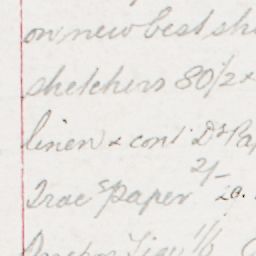 on new best sh
sketchers 80/2 x
linen & cont. Ds Pa
2/-
Trac s paper 20.
1/6